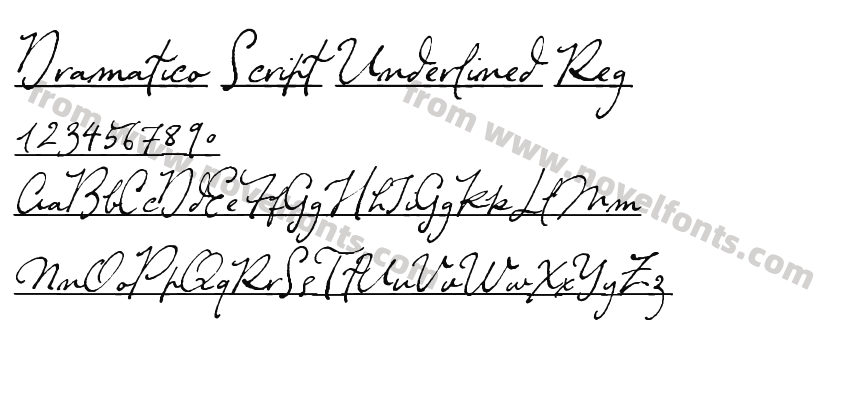 Dramatico Script Underlined Reg
1234567890
AaBbCcDdEeFfGgHhIiGgKkLlMm
NnOoPpQqRrSsTtUuVvWwXxYyZz
from www.novelfonts.com
from www.novelfonts.com